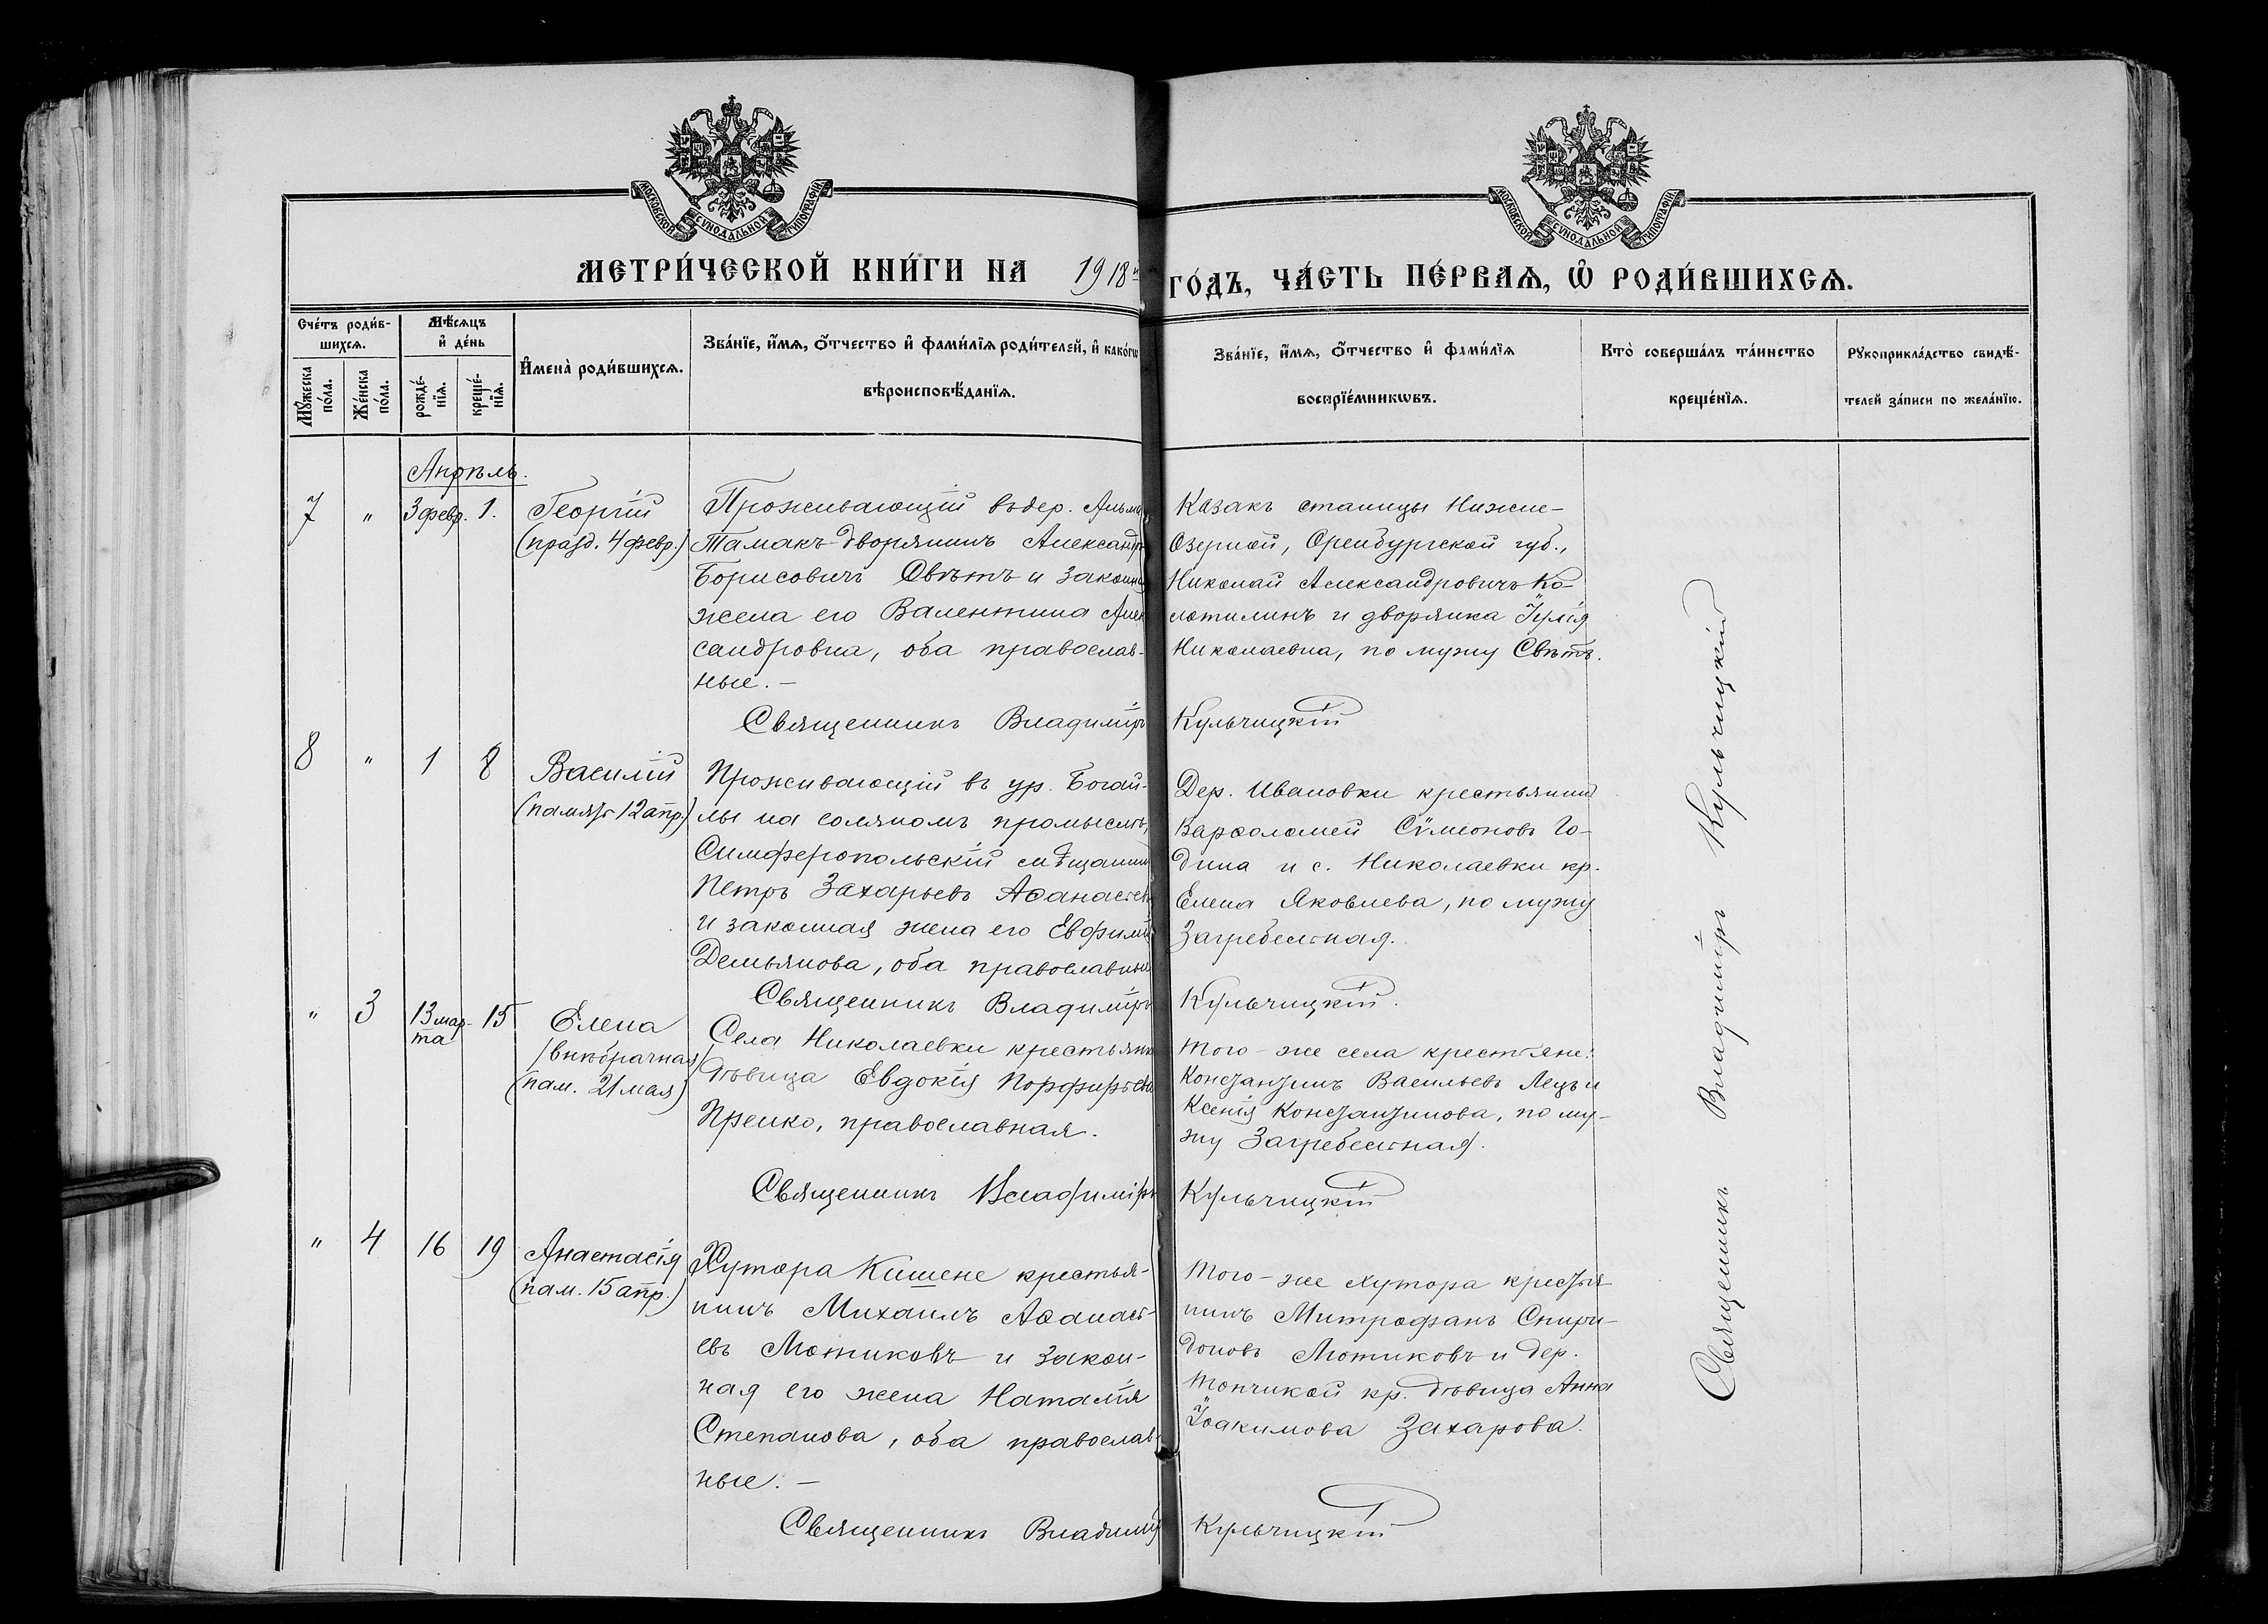 МОСКОВСКОЙ СѴНОДАЛЬНОЙ ТИПОГРАФІИ
МОСКОВСКОЙ СѴНОДАЛЬНОЙ ТИПОГРАФІИ
МЕТРИ́ЧЕСКОЙ КНИ́ГИ НА 1918й ГО́ДЪ, ЧА́СТЬ ПЕ́РВАѦ, Ѡ҆ РОДИ́ВШИХСѦ.
Сче́тъ роди́в-
шихсѧ.
Мꙋ́жеска
по́ла.
Же́нска
по́ла.
Мѣ́сѧцъ
и҆ де́нь
рожде́-
нїѧ.
креще́-
нїѧ.
И҆мена̀ роди́вшихсѧ.
Зва́нїе, и҆́мѧ, ѻ҆́тчество и҆ фами́лїѧ роди́телей, и҆ како́гѡ
вѣроисповѣ́данїѧ.
Зва́нїе, и҆́мѧ, ѻ҆́тчество и҆ фами́лїѧ
воспрїе́мникѡвъ.
Кто̀ соверша́лъ та́инство
креще́нїѧ.
Рꙋкоприкла́дство свидѣ́-
телей за́писи по жела́нїю.
Апрѣль.
7 " 3 февр. 1.
Георгій
(празд. 4 февр.)
Проживающій въ дер.
Тамакъ дворянинъ Александръ
Борисовичъ Свѣтъ и законная
жена его Валентина Алек
сандровна, оба православ-
ные. –
Священникъ Владиміръ Кульчицкій
Казакъ станицы Нижне-
Озерной, Оренбургской губ.,
Николай Александровичъ Ко-
лотилинъ и дворянка Іулія
Николаевна, по мужу Свѣтъ.
8 " 1 8
Василій
(память 12 апр.)
Проживающій въ ур. Богай-
лы на соляномъ промыслѣ,
Симферопольскій мѣщанинъ
Петръ Захарьевъ Аѳанасьевъ
и законная жена его Евфимія
Демьянова, оба православные
Священникъ Владиміръ Кульчицкій.
Дер. Ивановки крестьянинъ
Варѳоломей Сѵмеоновъ Го-
дина и с. Николаевки кр.
Елена Яковлева, по мужу
Загребельная.
" 3 13 мар- 15
та
Елена
/внѣбрачная/
(пам. 21 мая)
Села Николаевки крестьянка
дѣвица Евдокія Порфирьева
Пренко, православная.
Священникъ Владиміръ Кульчицкій
Того-же села крестьяне:
Константинъ Васильевъ Лецъ и
Ксенія Константинова, по му-
жу Загребельная.
" 4 16 19
Анастасія
(пам. 15 апр.)
Хутора Кишене крестья-
нинъ Михаилъ Аѳанась-
евъ Мотиковъ и закон-
ная его жена Наталія
Степанова, оба православ-
ные. –
Священникъ Владиміръ Кульчицкій
Того-же хутора крестья-
нинъ Митрофанъ Спири-
доновъ Мотиковъ и дер.
Топчикой кр. дѣвица Анна
Іоакимова Захарова.
Священникъ Владиміръ Кульчицкій